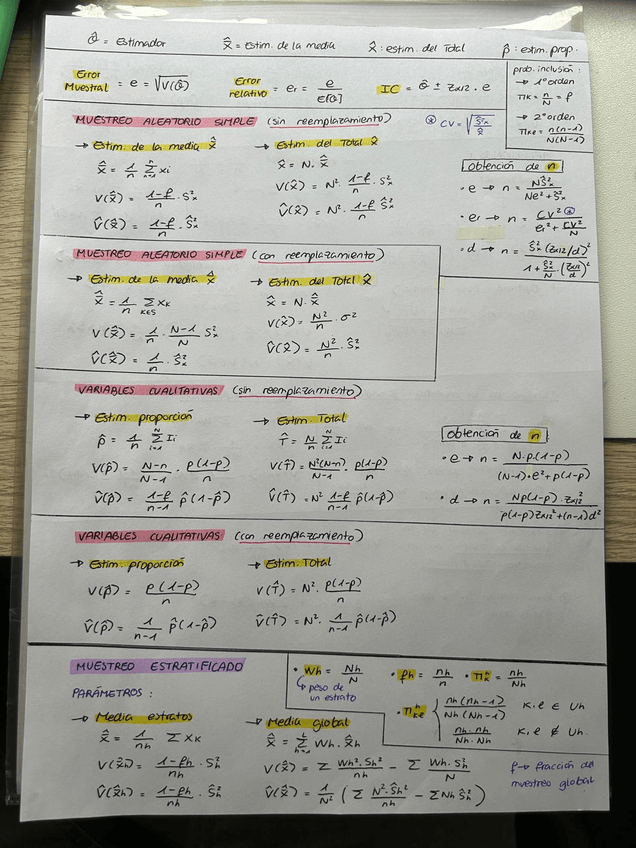 θ̂ = Estimador   x̄̂ = Estim. de la media   x̂ : estim. del Total   p̂ : estim. prop.
Error Muestral = e = √V(θ̂)   Error relativo = er = e / E[θ̂]   IC = θ̂ ± Zα/2 · e
prob. inclusión :
→ 1º orden
πk = n/N = f
→ 2º orden
πke = n(n-1) / N(N-1)
MUESTREO ALEATORIO SIMPLE (sin reemplazamiento)
* CV = √(Ŝ²x / x̄)
→ Estim. de la media x̄̂
x̄̂ = 1/n Σ xi
V(x̄̂) = (1-f)/n · S²x
V̂(x̄̂) = (1-f)/n · Ŝ²x
→ Estim. del Total x̂
x̂ = N · x̄̂
V(x̂) = N² · (1-f)/n · S²x
V̂(x̂) = N² · (1-f)/n Ŝ²x
obtención de n
· e → n = NŜ²x / (Ne² + Ŝ²x)
· er → n = CV² * / (er² + CV²/N)
· d → n = Ŝ²x (Zα/2/d)² / (1 + Ŝ²x/N · (Zα/2/d)²)
MUESTREO ALEATORIO SIMPLE (con reemplazamiento)
→ Estim. de la media x̄̂
x̄̂ = 1/n Σ k∈S xk
V(x̄̂) = 1/n · (N-1)/N S²x
V̂(x̄̂) = 1/n · Ŝ²x
→ Estim. del Total x̂
x̂ = N · x̄̂
V(x̂) = N²/n · σ²
V̂(x̂) = N²/n · Ŝ²x
VARIABLES CUALITATIVAS (sin reemplazamiento)
→ Estim. proporción
p̂ = 1/n Σ i=1 N Ii
V(p̂) = (N-n)/(N-1) · p(1-p)/n
V̂(p̂) = (1-f)/(n-1) · p̂(1-p̂)
→ Estim. Total
T̂ = N/n Σ i=1 N Ii
V(T̂) = N²(N-n)/(N-1) · p(1-p)/n
V̂(T̂) = N² (1-f)/(n-1) p̂(1-p̂)
obtención de n
· e → n = N·p·(1-p) / ((N-1)·e² + p(1-p))
· d → n = Np(1-p)·Zα/2² / (p(1-p)Zα/2² + (n-1)d²)
VARIABLES CUALITATIVAS (con reemplazamiento)
→ Estim. proporción
V(p̂) = p(1-p) / n
V̂(p̂) = 1/(n-1) p̂(1-p̂)
→ Estim. Total
V(T̂) = N² · p(1-p)/n
V̂(T̂) = N² · 1/(n-1) p̂(1-p̂)
MUESTREO ESTRATIFICADO
PARÁMETROS :
· Wh = Nh/N
↳ peso de un estrato
· fh = nh/n
· πhk = nh/Nh
· πhke { nh(nh-1) / Nh(Nh-1)   k,e ∈ Uh
nh·nh / Nh·Nh   k,e ∉ Uh.
→ Media estratos
x̄̂ = 1/nh Σ xk
V(x̄̂h) = (1-fh)/nh · S²h
V̂(x̄̂h) = (1-fh)/nh · Ŝ²h
→ Media global
x̄̂ = Σ h=1 L Wh · x̄̂h
V(x̄̂) = Σ Wh²·Sh²/nh − Σ Wh·S²h/N
V̂(x̄̂) = 1/N² ( Σ N²·Ŝh²/nh − Σ Nh Ŝ²h )
f → fracción del muestreo global